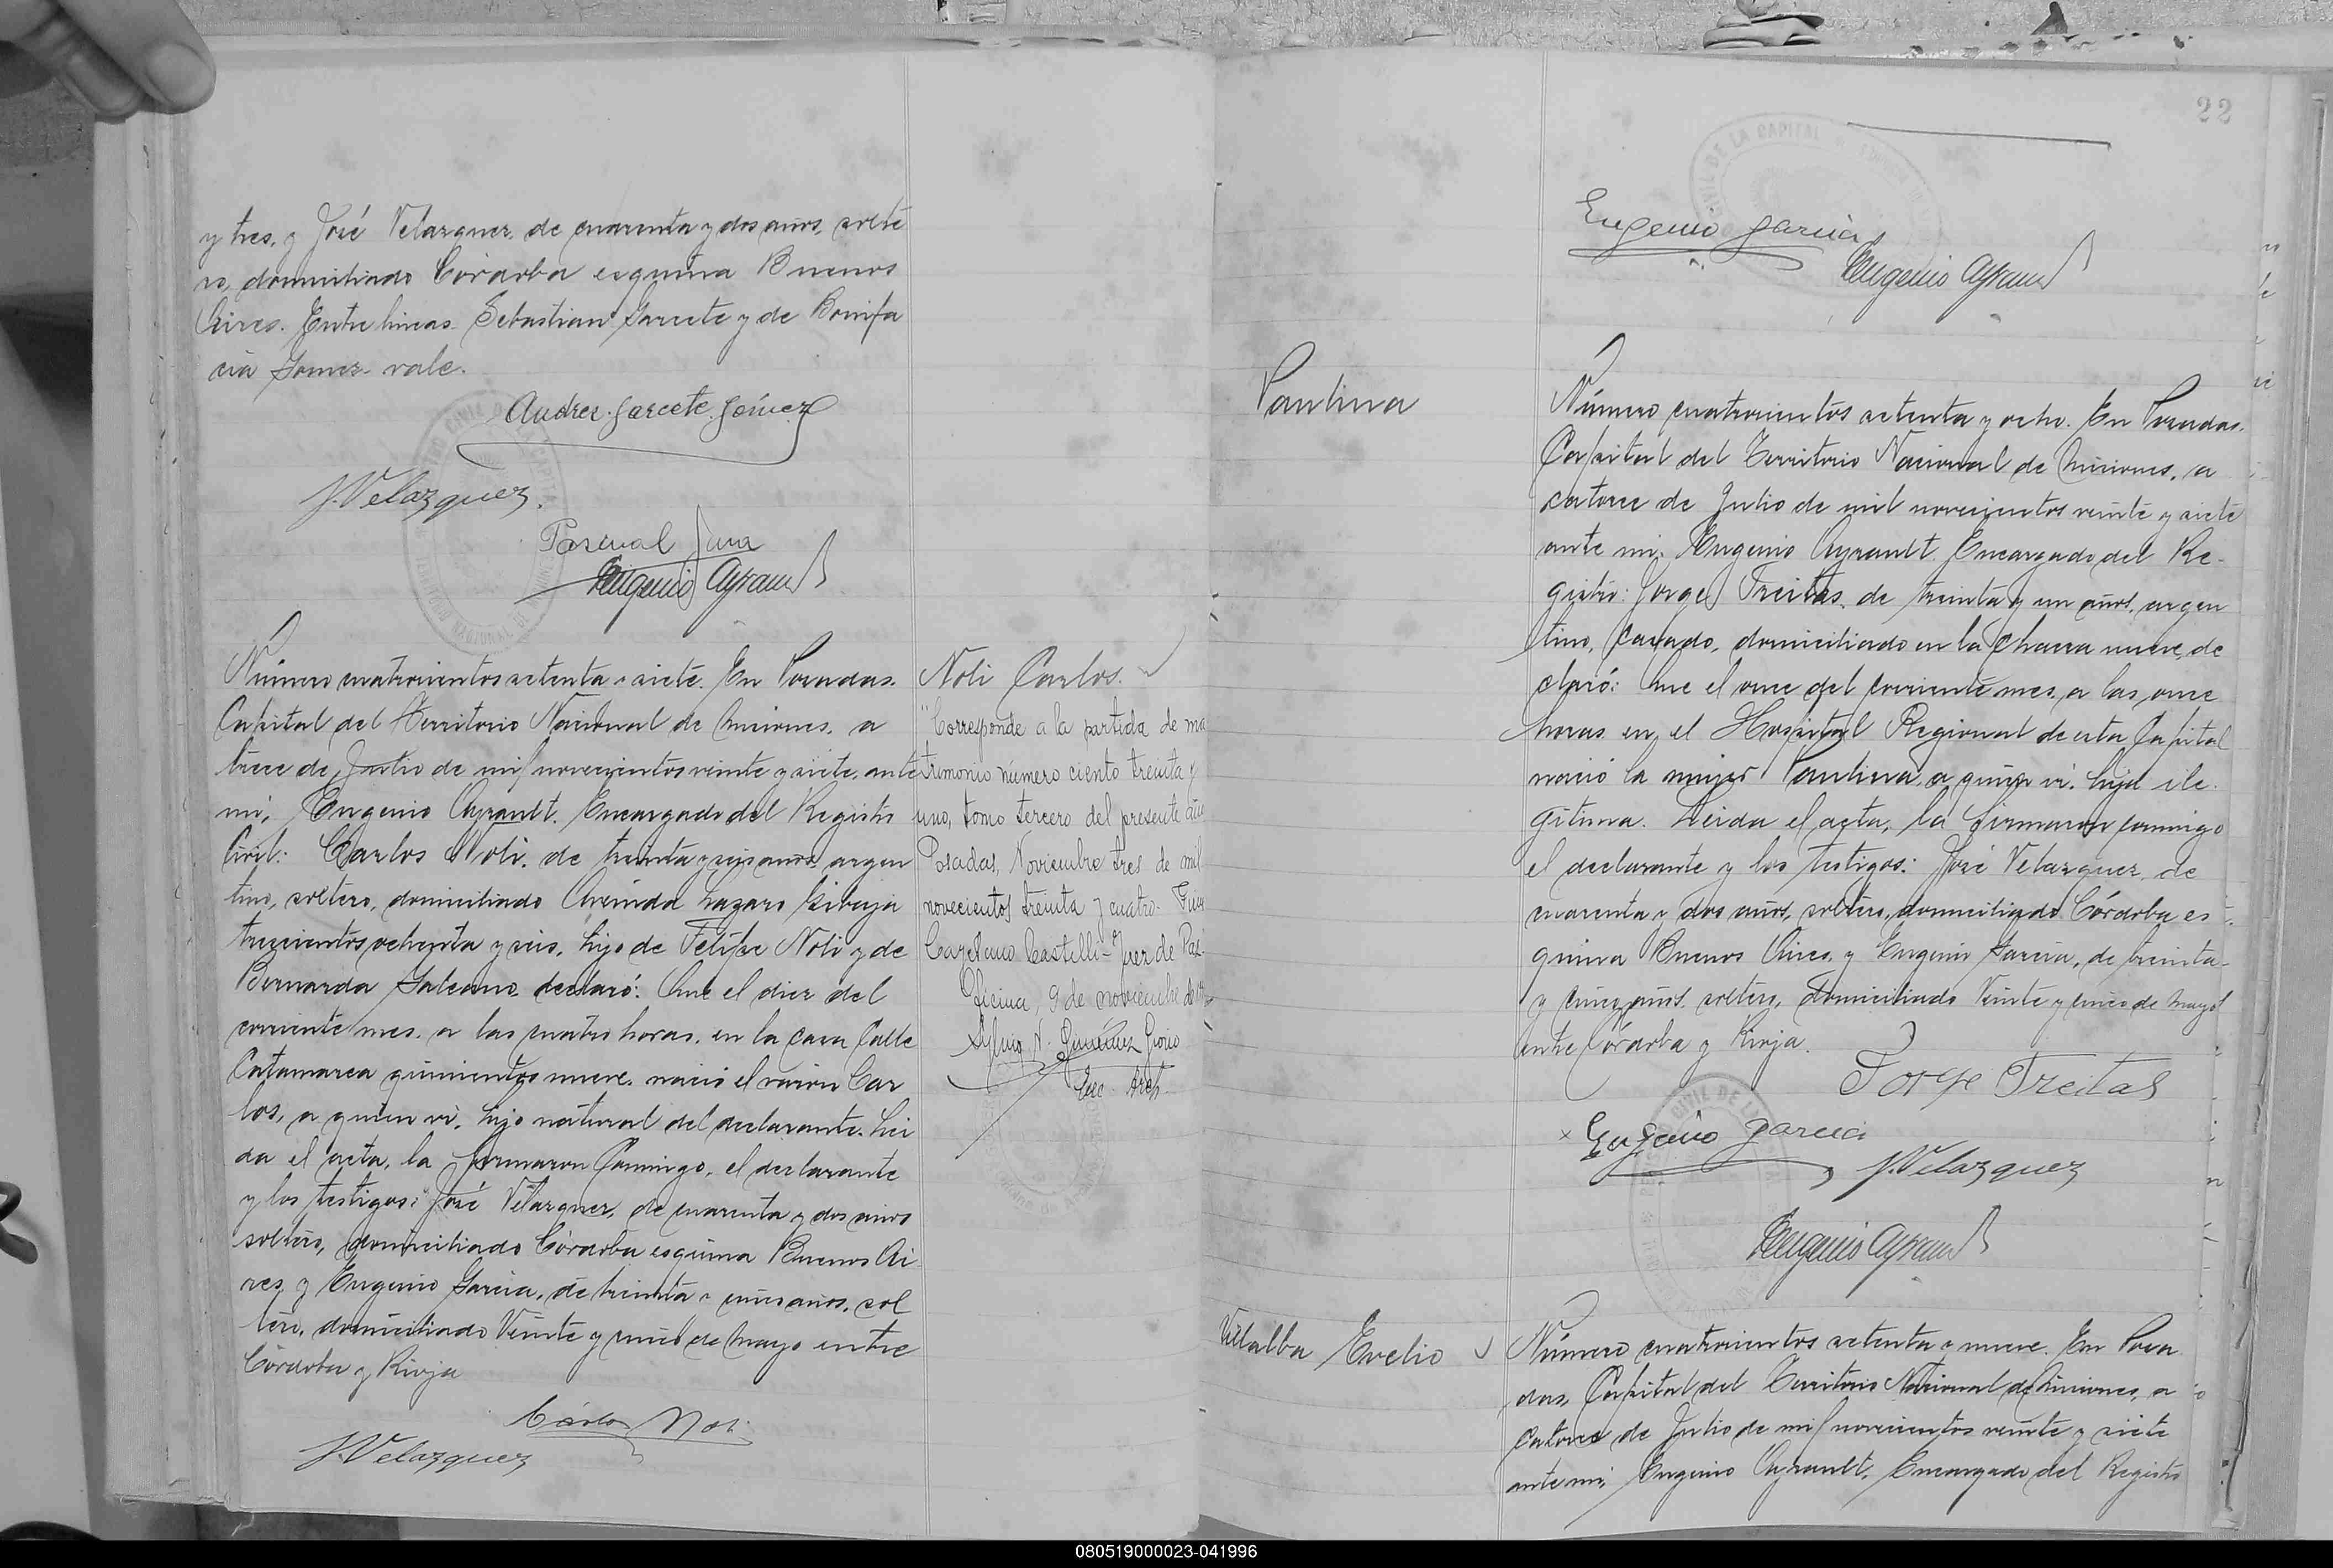 y tres, y José Velazquez, de cuarenta y dos años, solte
ro, domiciliado Córdoba esquina Buenos
Aires. Entre lineas- Sebastian Garcete y de Bonifa
cia Gomez- vale.
Andres Garcete Gómez
J. Velazquez.
Pascual Jara
Eugenio Ayrault
Número cuatrocientos setenta y siete. En Posadas.
Capital del Territorio Nacional de Misiones, a
trece de Julio de mil novecientos veinte y siete, ante
mi, Eugenio Ayrault. Encargado del Registro
Civil: Carlos Noli, de treinta y seis años, argen
tino, soltero, domiciliado Avenida Lazaro
trescientos ochenta y seis, hijo de Felipe Noli y de
Bernarda Galeano declaró: Que el diez del
corriente mes, a las cuatro horas, en la casa Calle
Catamarca quinientos nueve, nació el varón Car
los, a quien vi, hijo natural del declarante. Lei
da el acta, la firmaron conmigo, el declarante
y los testigos: José Velazquez, de cuarenta y dos años
soltero, domiciliado Córdoba esquina Buenos Ai
res, y Eugenio Garcia, de treinta y cinco años, sol
tero, domiciliado Veinte y cinco de Mayo entre
Córdoba y Rioja
Cárlos Noli
J. Velazquez
Noli Carlos.
"Corresponde a la partida de ma
trimonio número ciento treinta y
uno, tomo tercero del presente año
Posadas, Noviembre tres de mil
novecientos treinta y cuatro-
Cayetano Castelli- Juez de Paz-
Oficina, 9 de noviembre de
Enc. Arch.
22
Eugenio Garcia
Eugenio Ayrault
Paulina
Número cuatrocientos setenta y ocho. En Posadas.
Capital del Territorio Nacional de Misiones, a
catorce de Julio de mil novecientos veinte y siete
ante mi, Eugenio Ayrault. Encargado del Re-
gistro: Jorge Freitas, de treinta y un años, argen
tino, casado, domiciliado en la Chacra nueve, de
claró: Que el once del corriente mes, a las once
horas, en el Hospital Regional de esta Capital
nació la mujer Paulina, a quien vi, hija ile
gitima. Leida el acta, la firmaron conmigo
el declarante y los testigos: José Velazquez, de
cuarenta y dos años, soltero, domiciliado Córdoba es
quina Buenos Aires, y Eugenio Garcia, de treinta-
y cinco años, soltero, domiciliado Veinte y cinco de Mayo
entre Córdoba y Rioja.
Jorge Freitas
Eugenio Garcia
J. Velazquez
Eugenio Ayrault
Villalba Evelio
Número cuatrocientos setenta y nueve. En Posa
das, Capital del Territorio Nacional de Misiones, a
catorce de Julio de mil novecientos veinte y siete
ante mi, Eugenio Ayrault, Encargado del Registro
080519000023-041996